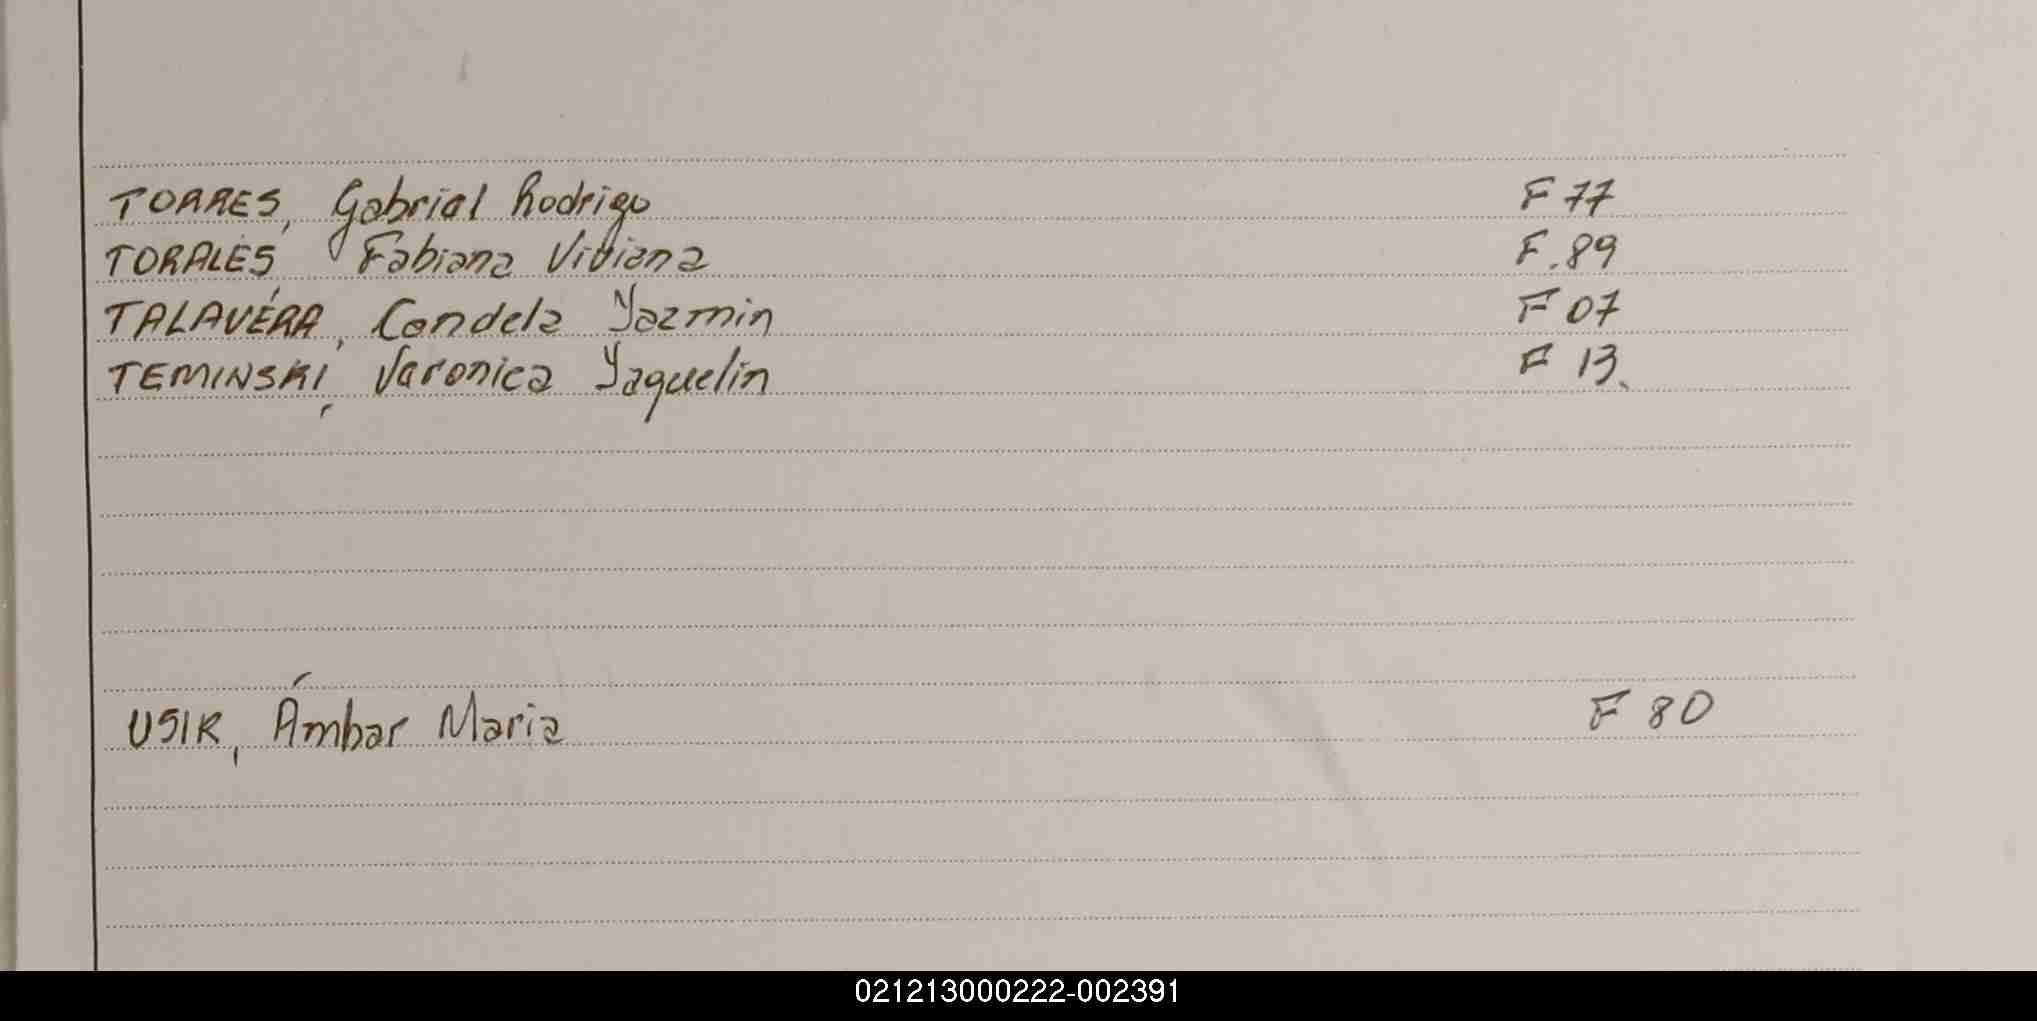 TORRES, Gabriel Rodrigo F 77
TORALES, Fabiana Viviana F.89
TALAVERA, Candela Yazmin F 07
TEMINSKI, Veronica Yaquelin F 13.
USIR, Ámbar Maria F 80
021213000222-002391